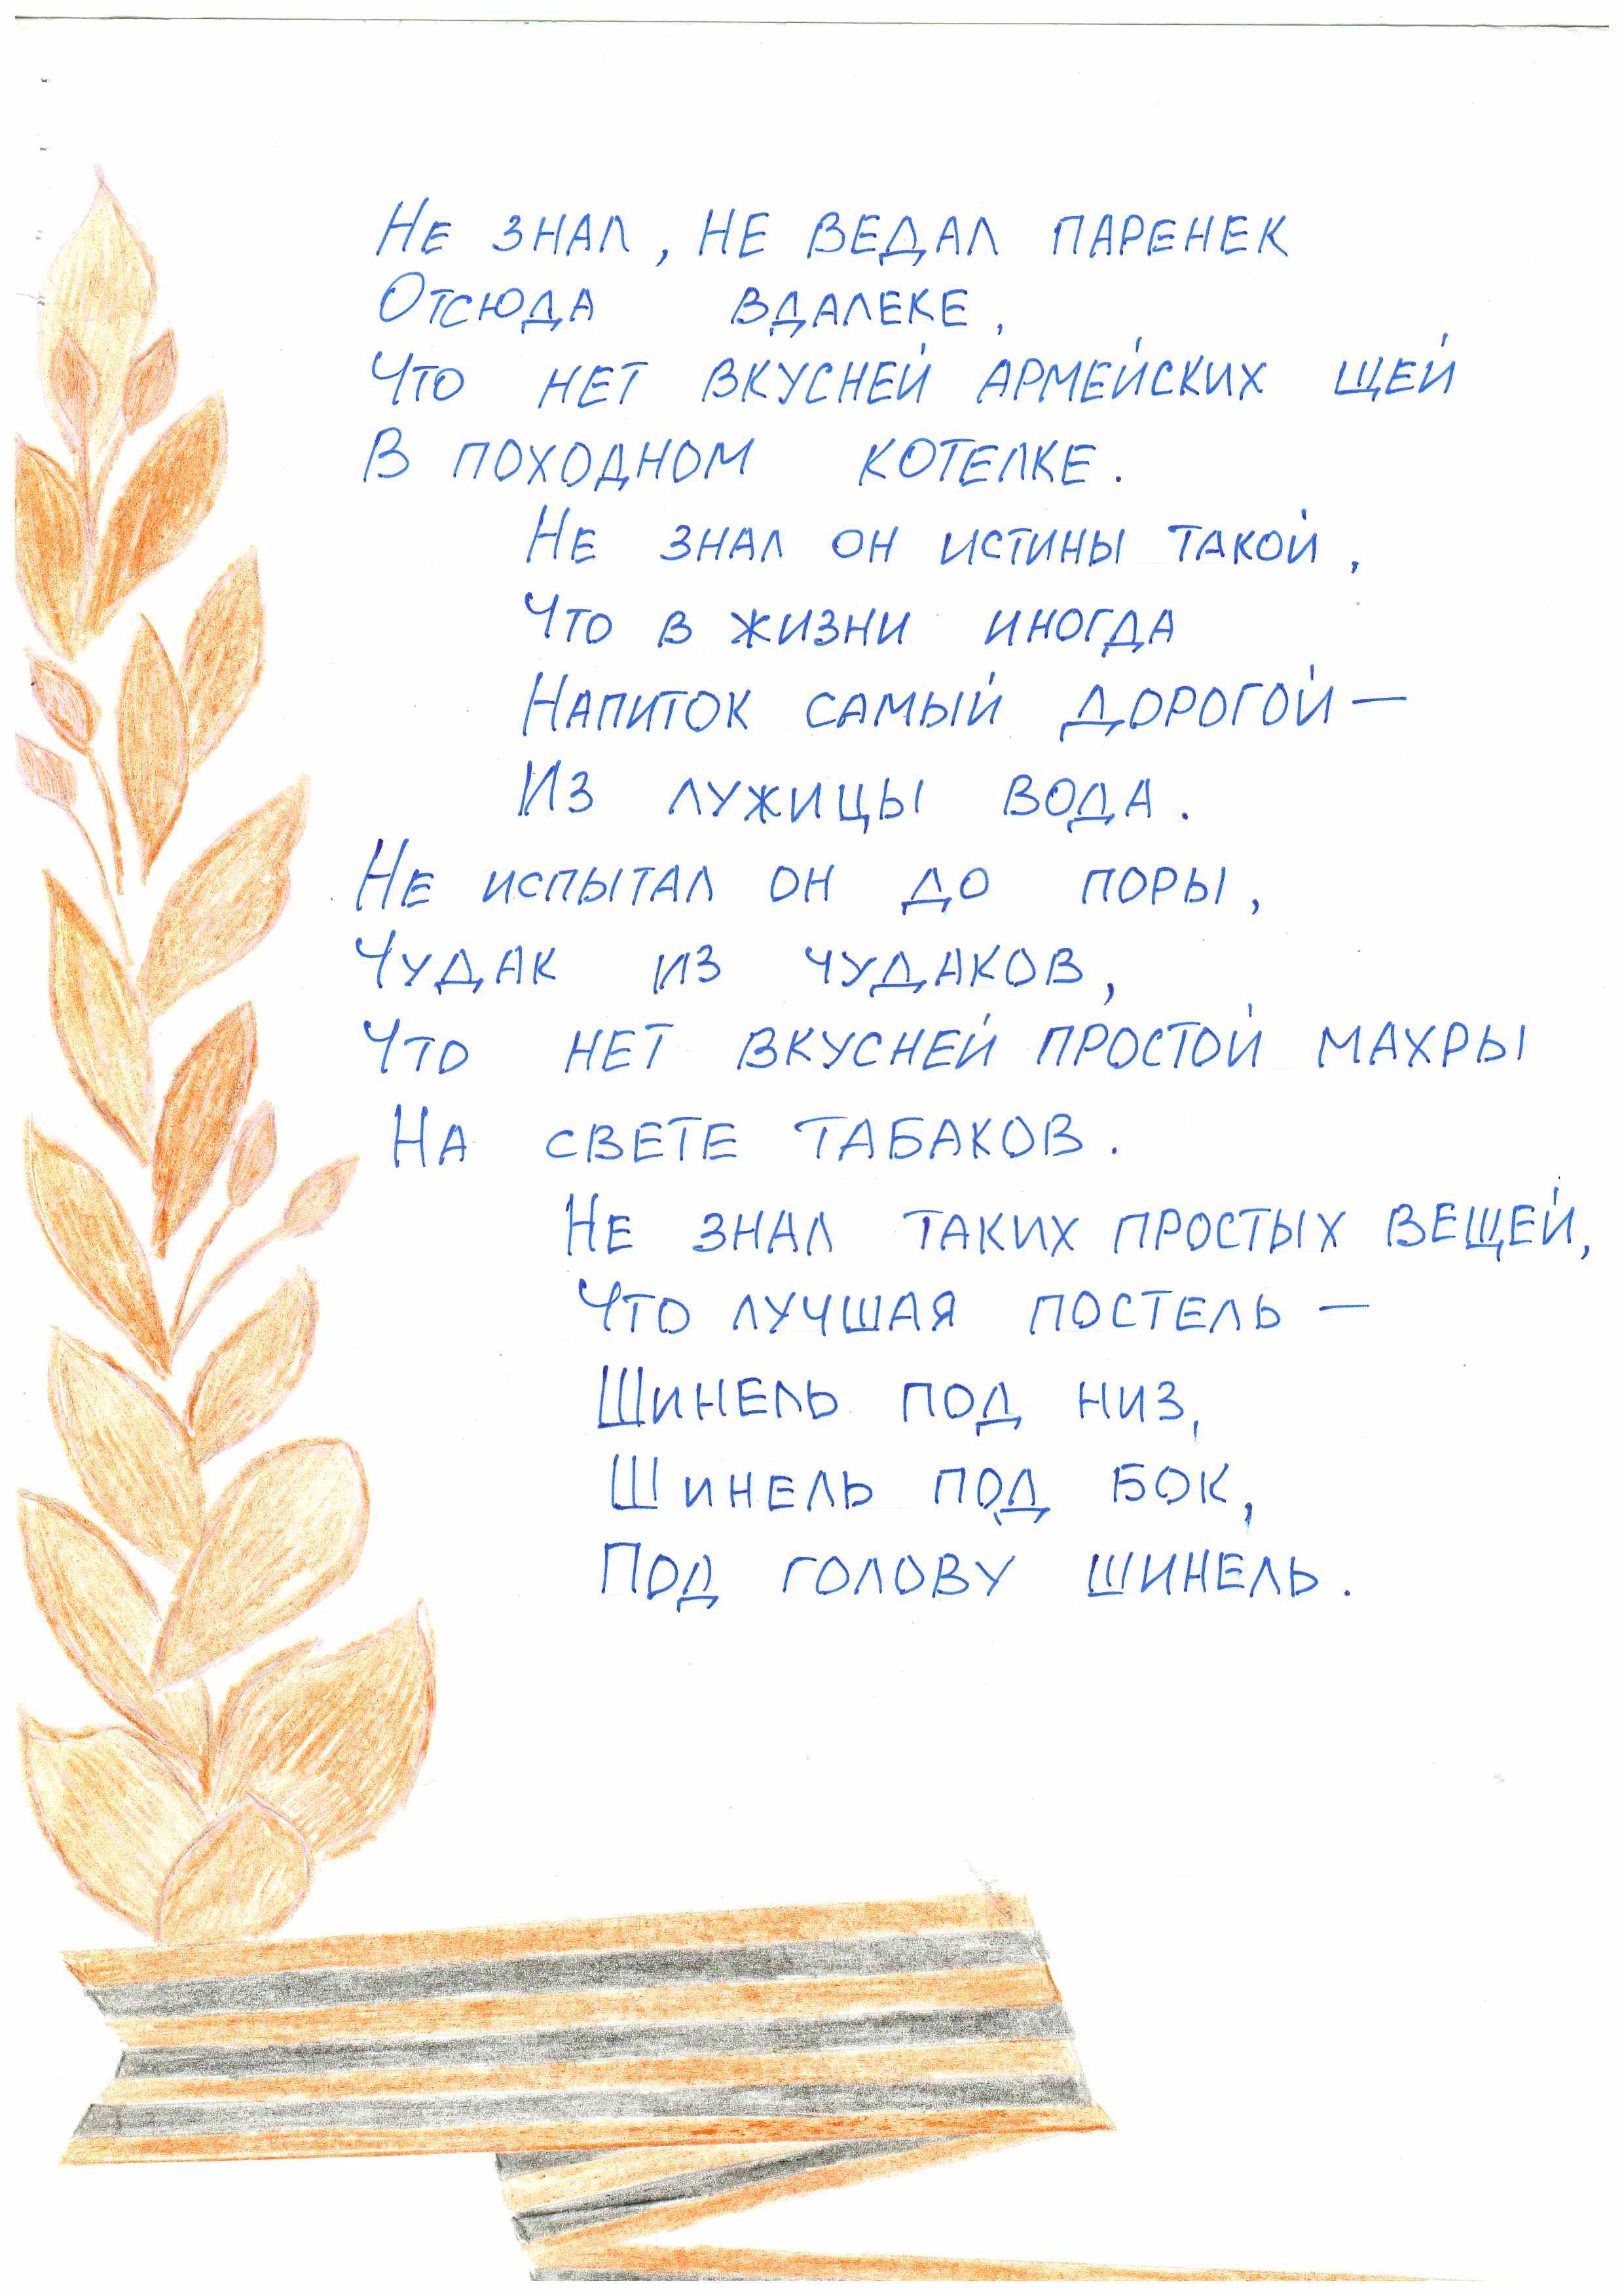 Не знал, не ведал паренек
Отсюда вдалеке,
Что нет вкусней армейских щей
В походном котелке.
Не знал он истины такой,
Что в жизни иногда
Напиток самый дорогой —
Из лужицы вода.
Не испытал он до поры,
Чудак из чудаков,
Что нет вкусней простой махры
На свете табаков.
Не знал таких простых вещей,
Что лучшая постель —
Шинель под низ,
Шинель под бок,
Под голову шинель.